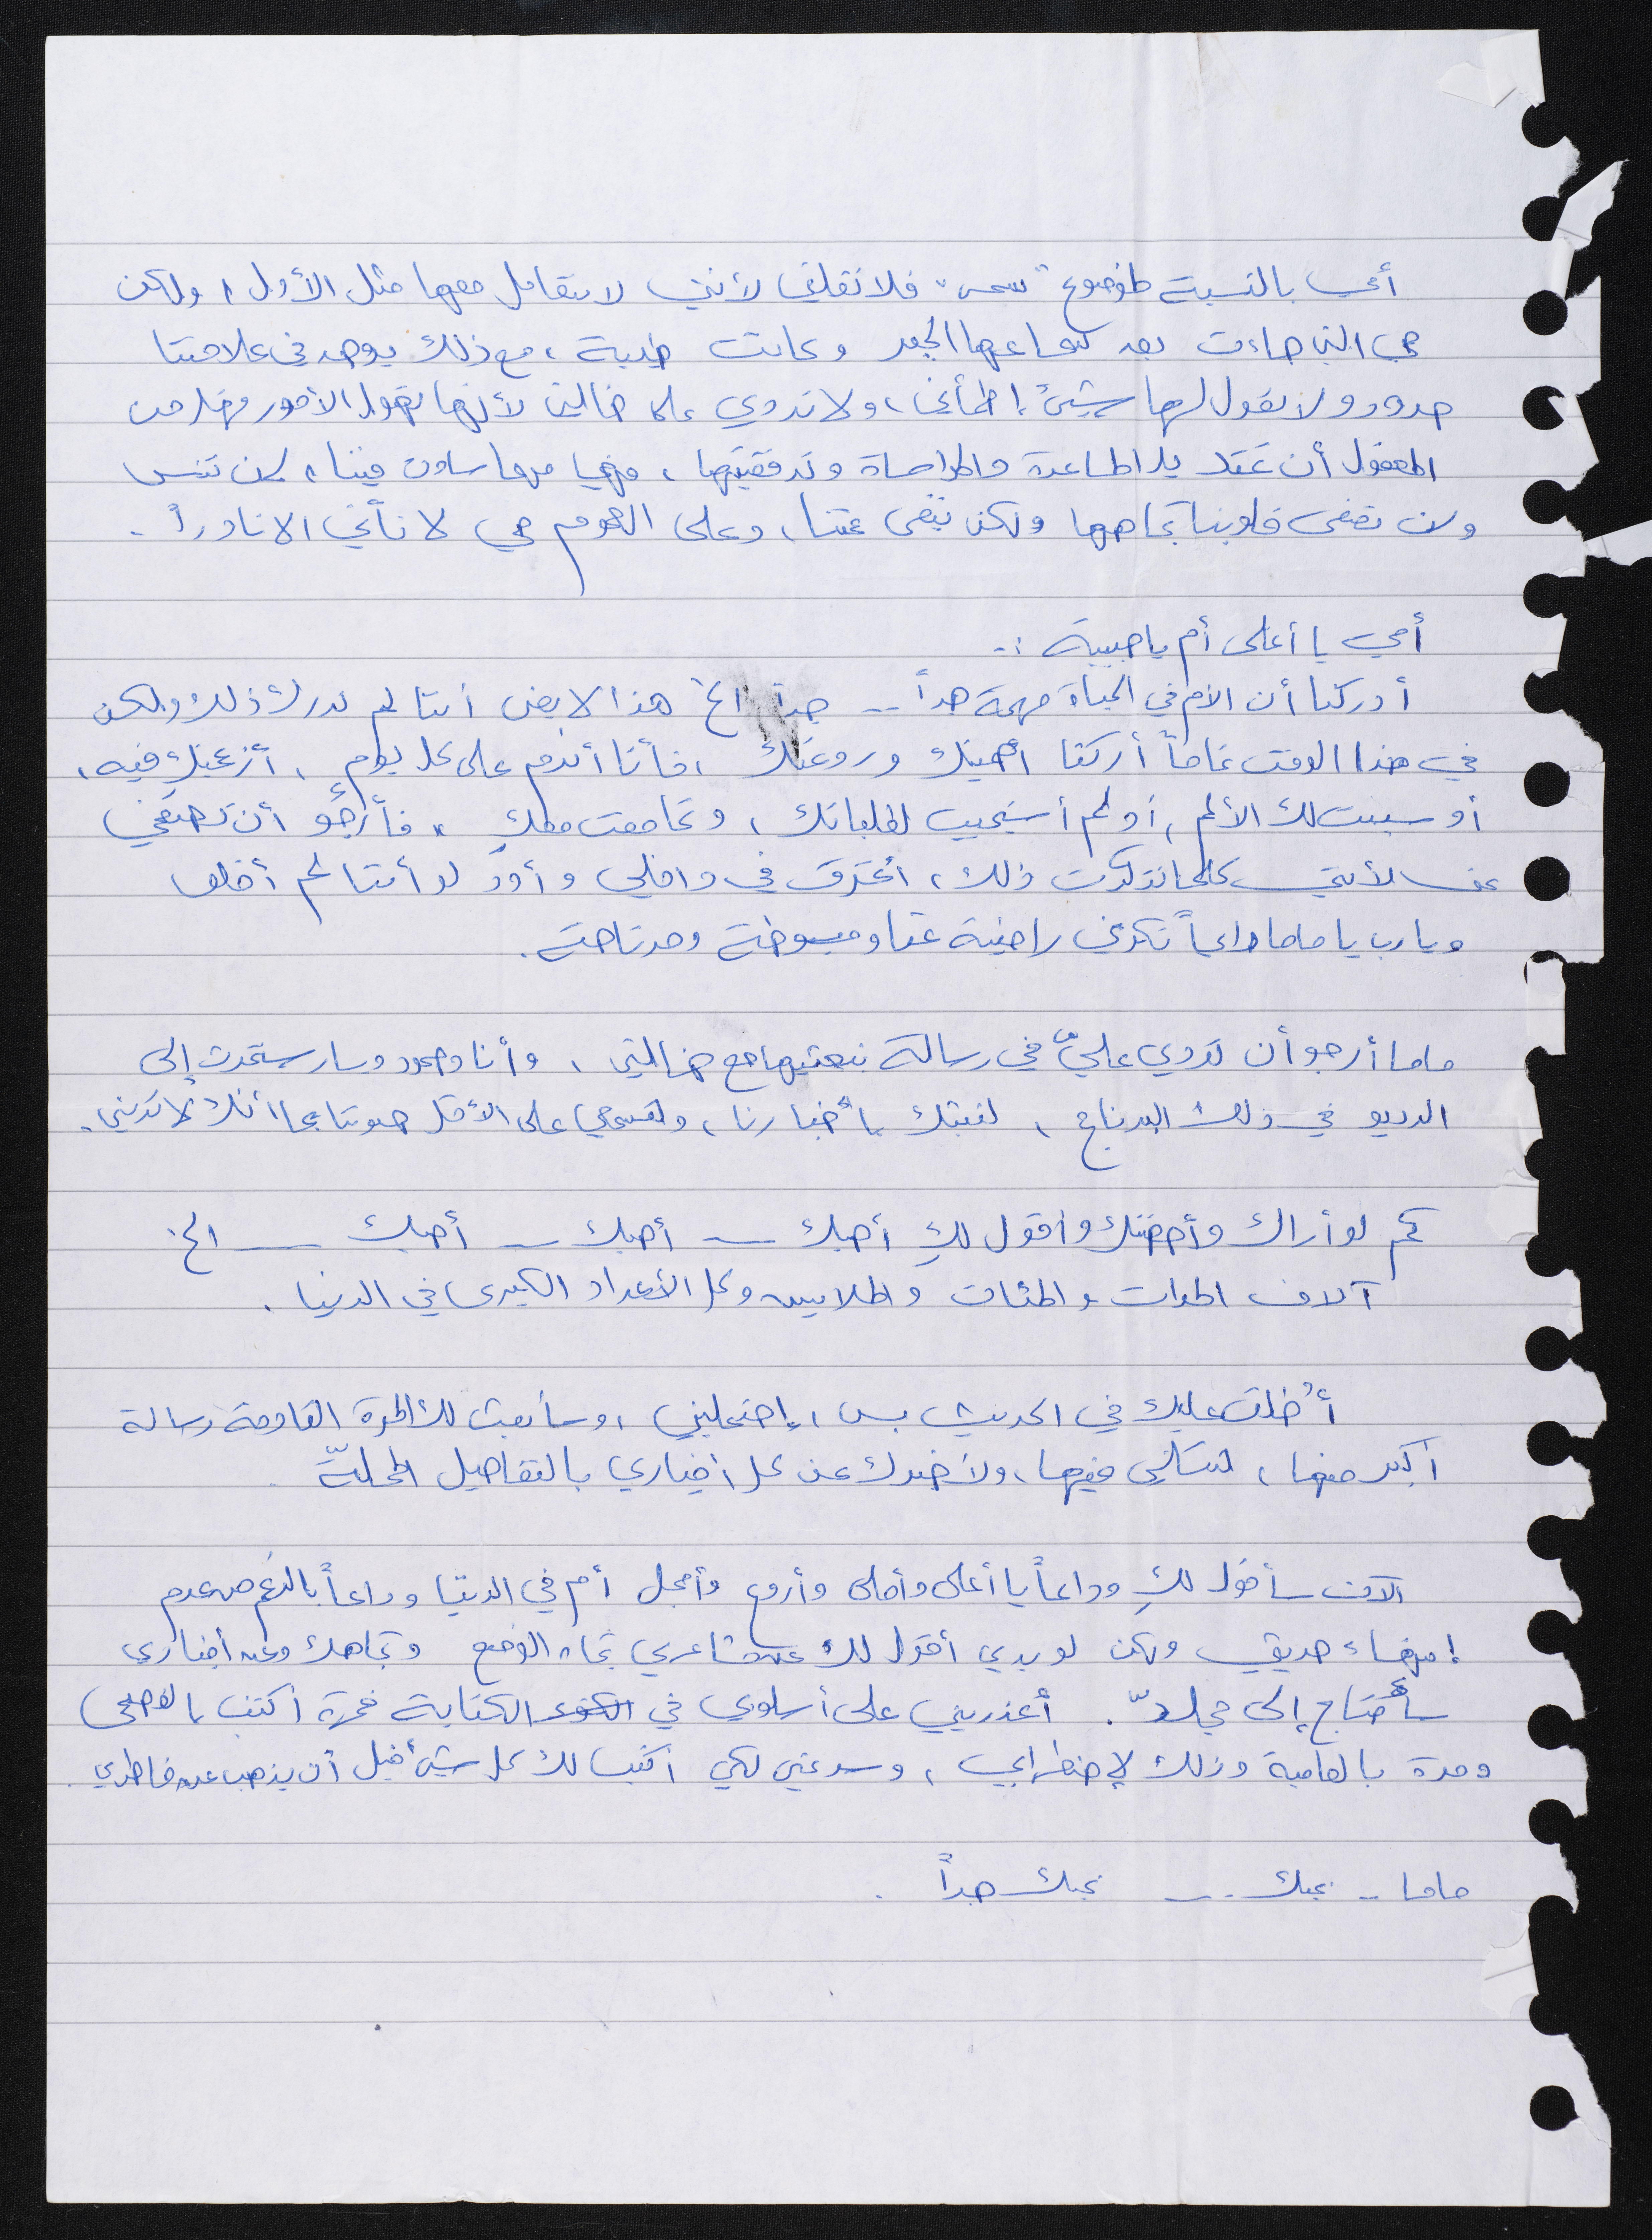 أمي بالنسبة لموضوع "سمر" فلا تقلقي لأننا لا نتعامل معها مثل الأول، ولكن
هي التي جاءت بعد سماعها الخبر وكانت طيبة، مع ذلك يوجد في علاقتنا
حدود ولا نقول لها شيئ إطمأني، ولا تردي على خالتي لأنها تهول الأمور فهل من
المعقول أن تمتد يد المساعدة والمواساة وترفضيها، فهي مهما ساوت فينا، لن ننسى
ولن تصفى قلوبنا تجاهها ولكن تبقى عمتنا، وعلى العموم هي لا تأتي الا نادراً.
أمي يا أغلى أم يا حبيبة :-
أدركنا أن الأم في الحياة مهمة جداً -- جداً الخ هذا لا يعني أننا لم ندرك ذلك ولكن
في هذا الوقت تماماً أدركنا أهميتك وروعتك، فأنا أندم على كل يوم، أزعجتك فيه،
أو سببت لك الألم، أو لم أستجيب لطلباتك، وتخانقت معكِ، فأرجو أن تصفحي
عني لأنني كلما تذكرت ذلك، أحترق في داخلي وأودّ لو أننا لم أخلق
ويارب يا ماما دائماً تكوني راضية عنا ومبسوطة ومرتاحة.
ماما أرجو أن تردي عليّ في رسالة تبعتيها مع خالتي، وأنا و وسار ستحدث إلى
الرديو في ذلك البرنامج، لنعبّك بأخبارنا، ولتسمعي على الأقل صوتنا بما أنك لا ترينني.
كم لو أراك وأحضنك وأقول لكِ أحبك -- أحبك -- أحبك -- الخ
آلاف المرات والمئات والملايين وكل الأعداد الكبرى في الدنيا.
أطلت عليك في الحديث بس، إحتمليني، وسأبعث لك المرة القادمة رسالة
أكبر منها، لتسألي فيها، ولأخبرك عن كل أخباري بالتفاصيل المملّة.
الآن سأقول لكِ وداعاً يا أغلى وأحلى وأروع وأجمل أم في الدنيا وداعاً بالرغم من عدم
إنهاء حديثي ولكن لو بدي أقول لك عن مشاعري تجاه الوضع وتجاهك وعن أخباري
سأحتاج إلى مجلدّ. أعذريني على أسلوبي في الكتابة فمرة أكتب بالفصحى
ومرة بالعامية وذلك لإضطرابي، وسرعتي لكي أكتب لك كل شيئ قبل أن يذهب عن خاطري.
ماما -- نحبك -- نحبك جداً.